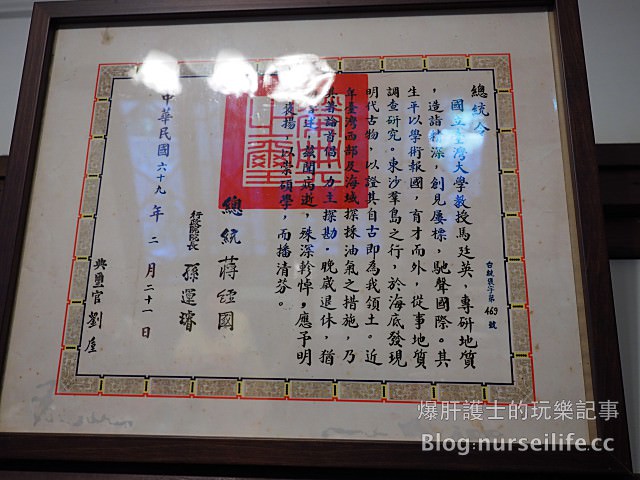 總統令
國立臺灣大學教授馬廷英，專研地質
，造詣精深，創見屢標，馳聲國際。其
生平以學術報國，育才而外，從事地質
調查研究。東沙羣島之行，於海底發現
明代古物，以證其自古即為我領土。近
年臺灣西部及海域探採油氣之措施，乃
著論首倡，力主探勘。晚歲退休，猶
病逝，殊深軫悼，應予明
揚，以崇碩學，而播清芬。
總統 蔣經國
行政院院長 孫運璿
中華民國六十九年二月二十一日
典璽官 劉垕
台統褒字第 469 號
爆肝護士的玩樂記事
Blog:nurseilife.cc